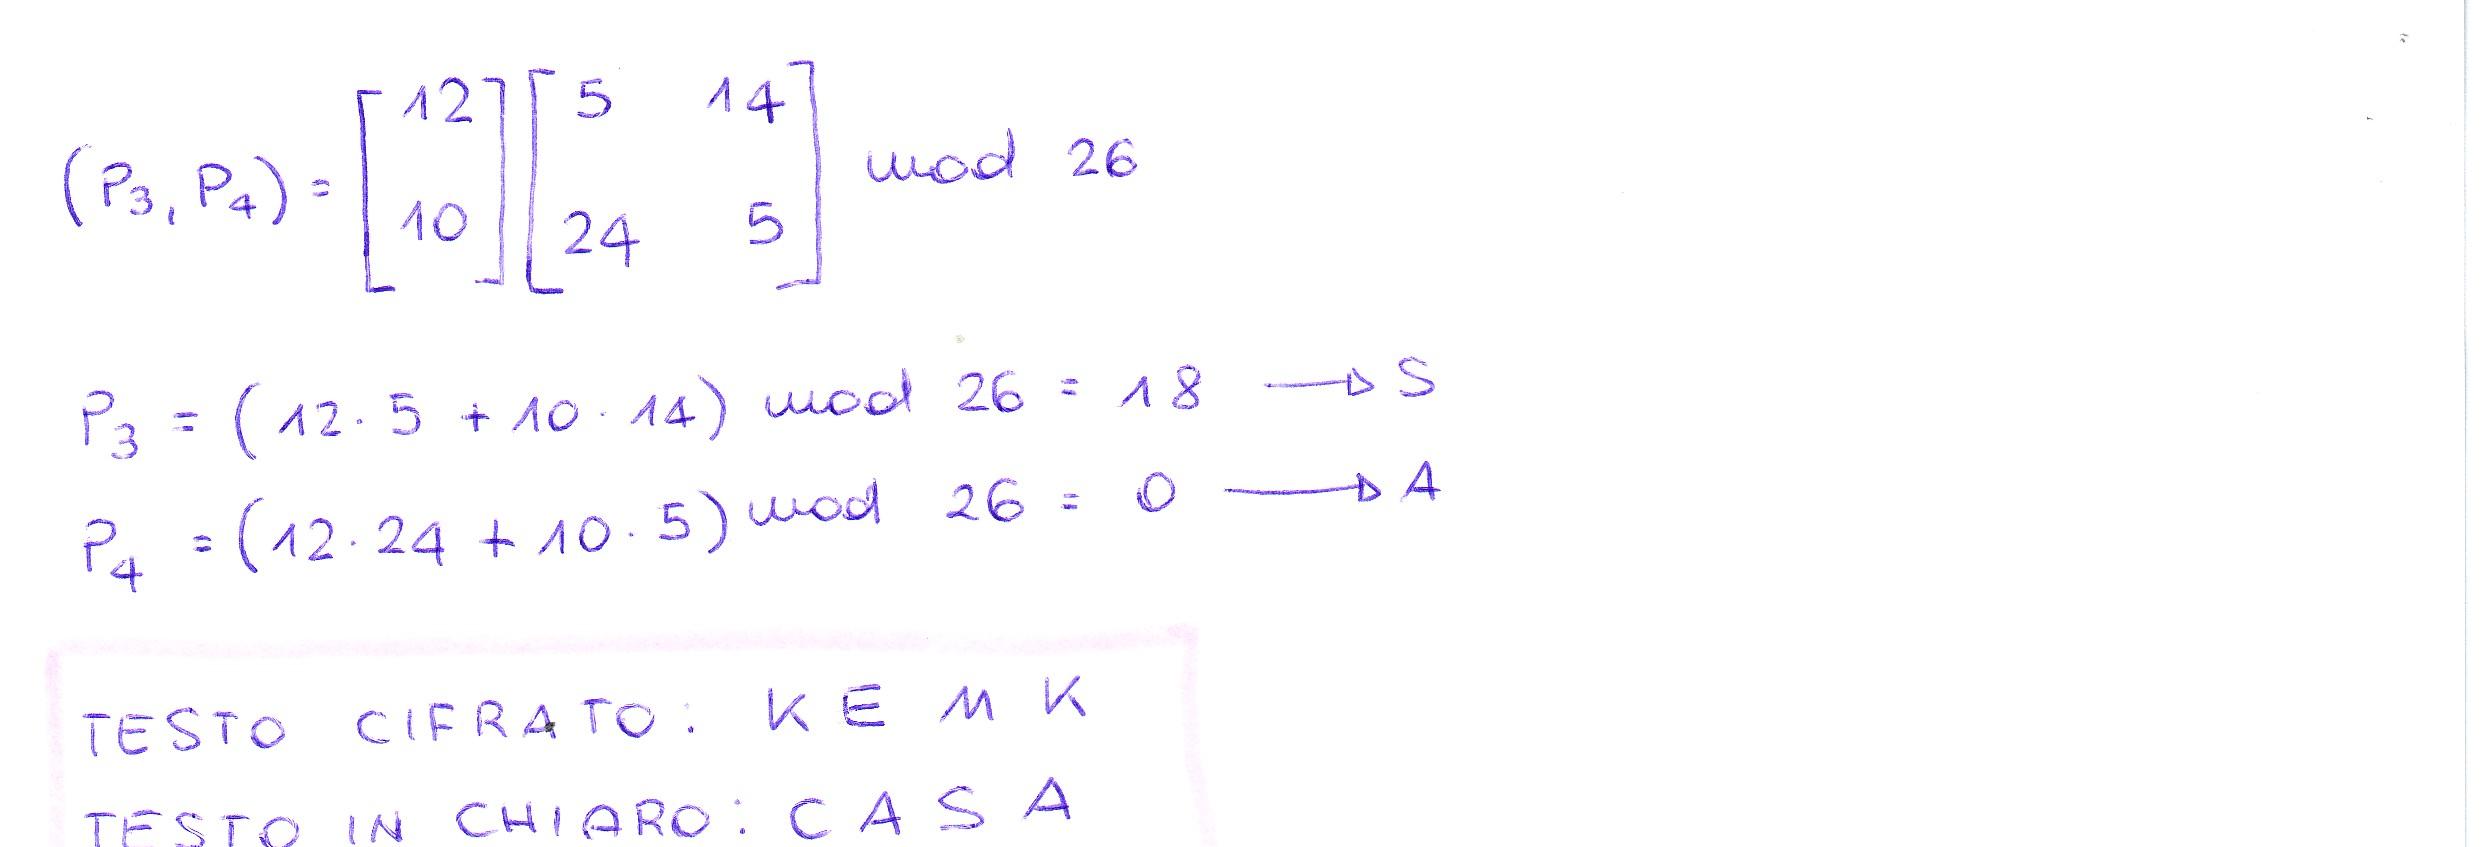 (P₃, P₄) = [12 10] [5 14 24 5] mod 26
P₃ = (12 · 5 + 10 · 14) mod 26 = 18 → S
P₄ = (12 · 24 + 10 · 5) mod 26 = 0 → A
TESTO CIFRATO: K E M K
TESTO IN CHIARO: C A S A